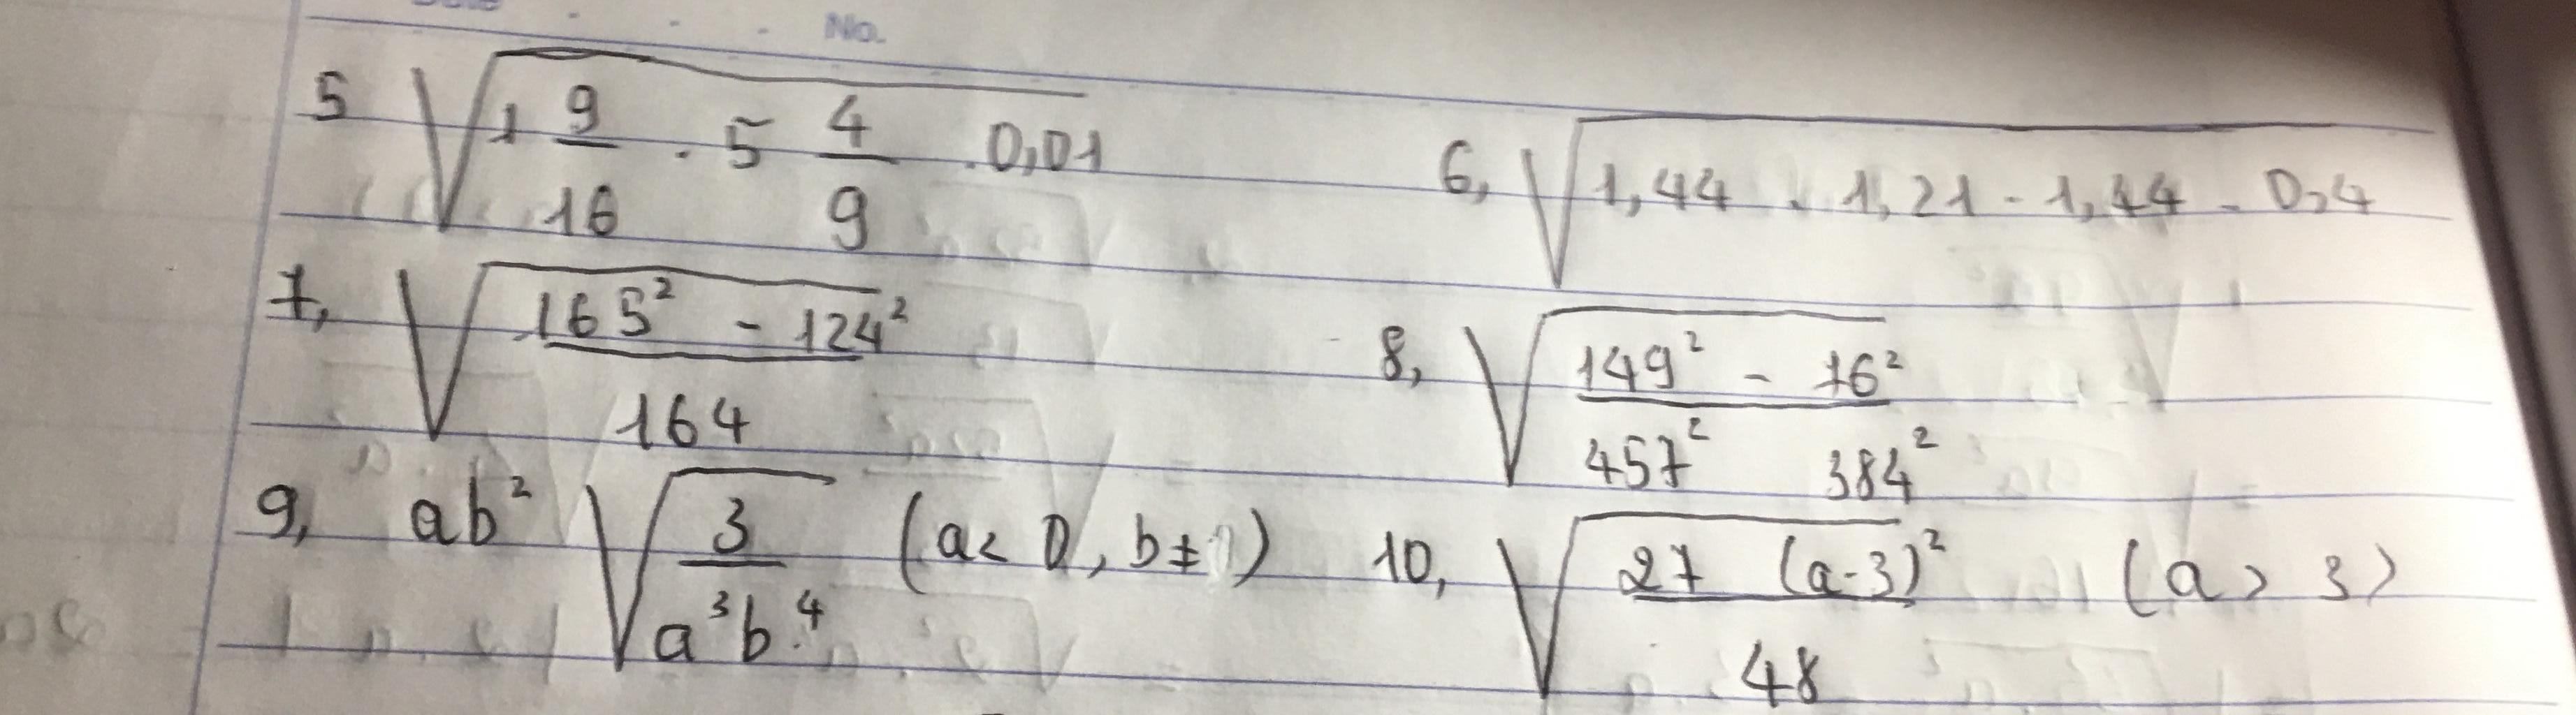 No.
5 √(1 9/16 . 5 4/9 . 0,01)
6, √(1,44 . 1,21 - 1,44 . 0,4)
7, √((165² - 124²)/164)
8, √((149² - 76²)/(457² 384²))
9, ab² √(3/(a³b⁴)) (a < 0, b ≠ )
10, √((27 (a-3)²)/48) (a > 3)